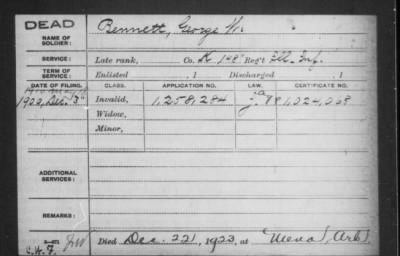 DEAD
NAME OF SOLDIER:
Bennett, George W.
SERVICE:
Late rank, Co. K 148" Reg't Ill. Inf.
TERM OF SERVICE:
Enlisted , 1 Discharged , 1
DATE OF FILING. CLASS. APPLICATION NO. LAW. CERTIFICATE NO.
1900, Dec. Invalid, 1,258,284 1,024,258
Widow,
Minor,
ADDITIONAL SERVICES:
REMARKS:
C. H. 7.
Died Dec. 22, 1923, at Mena, Ark.